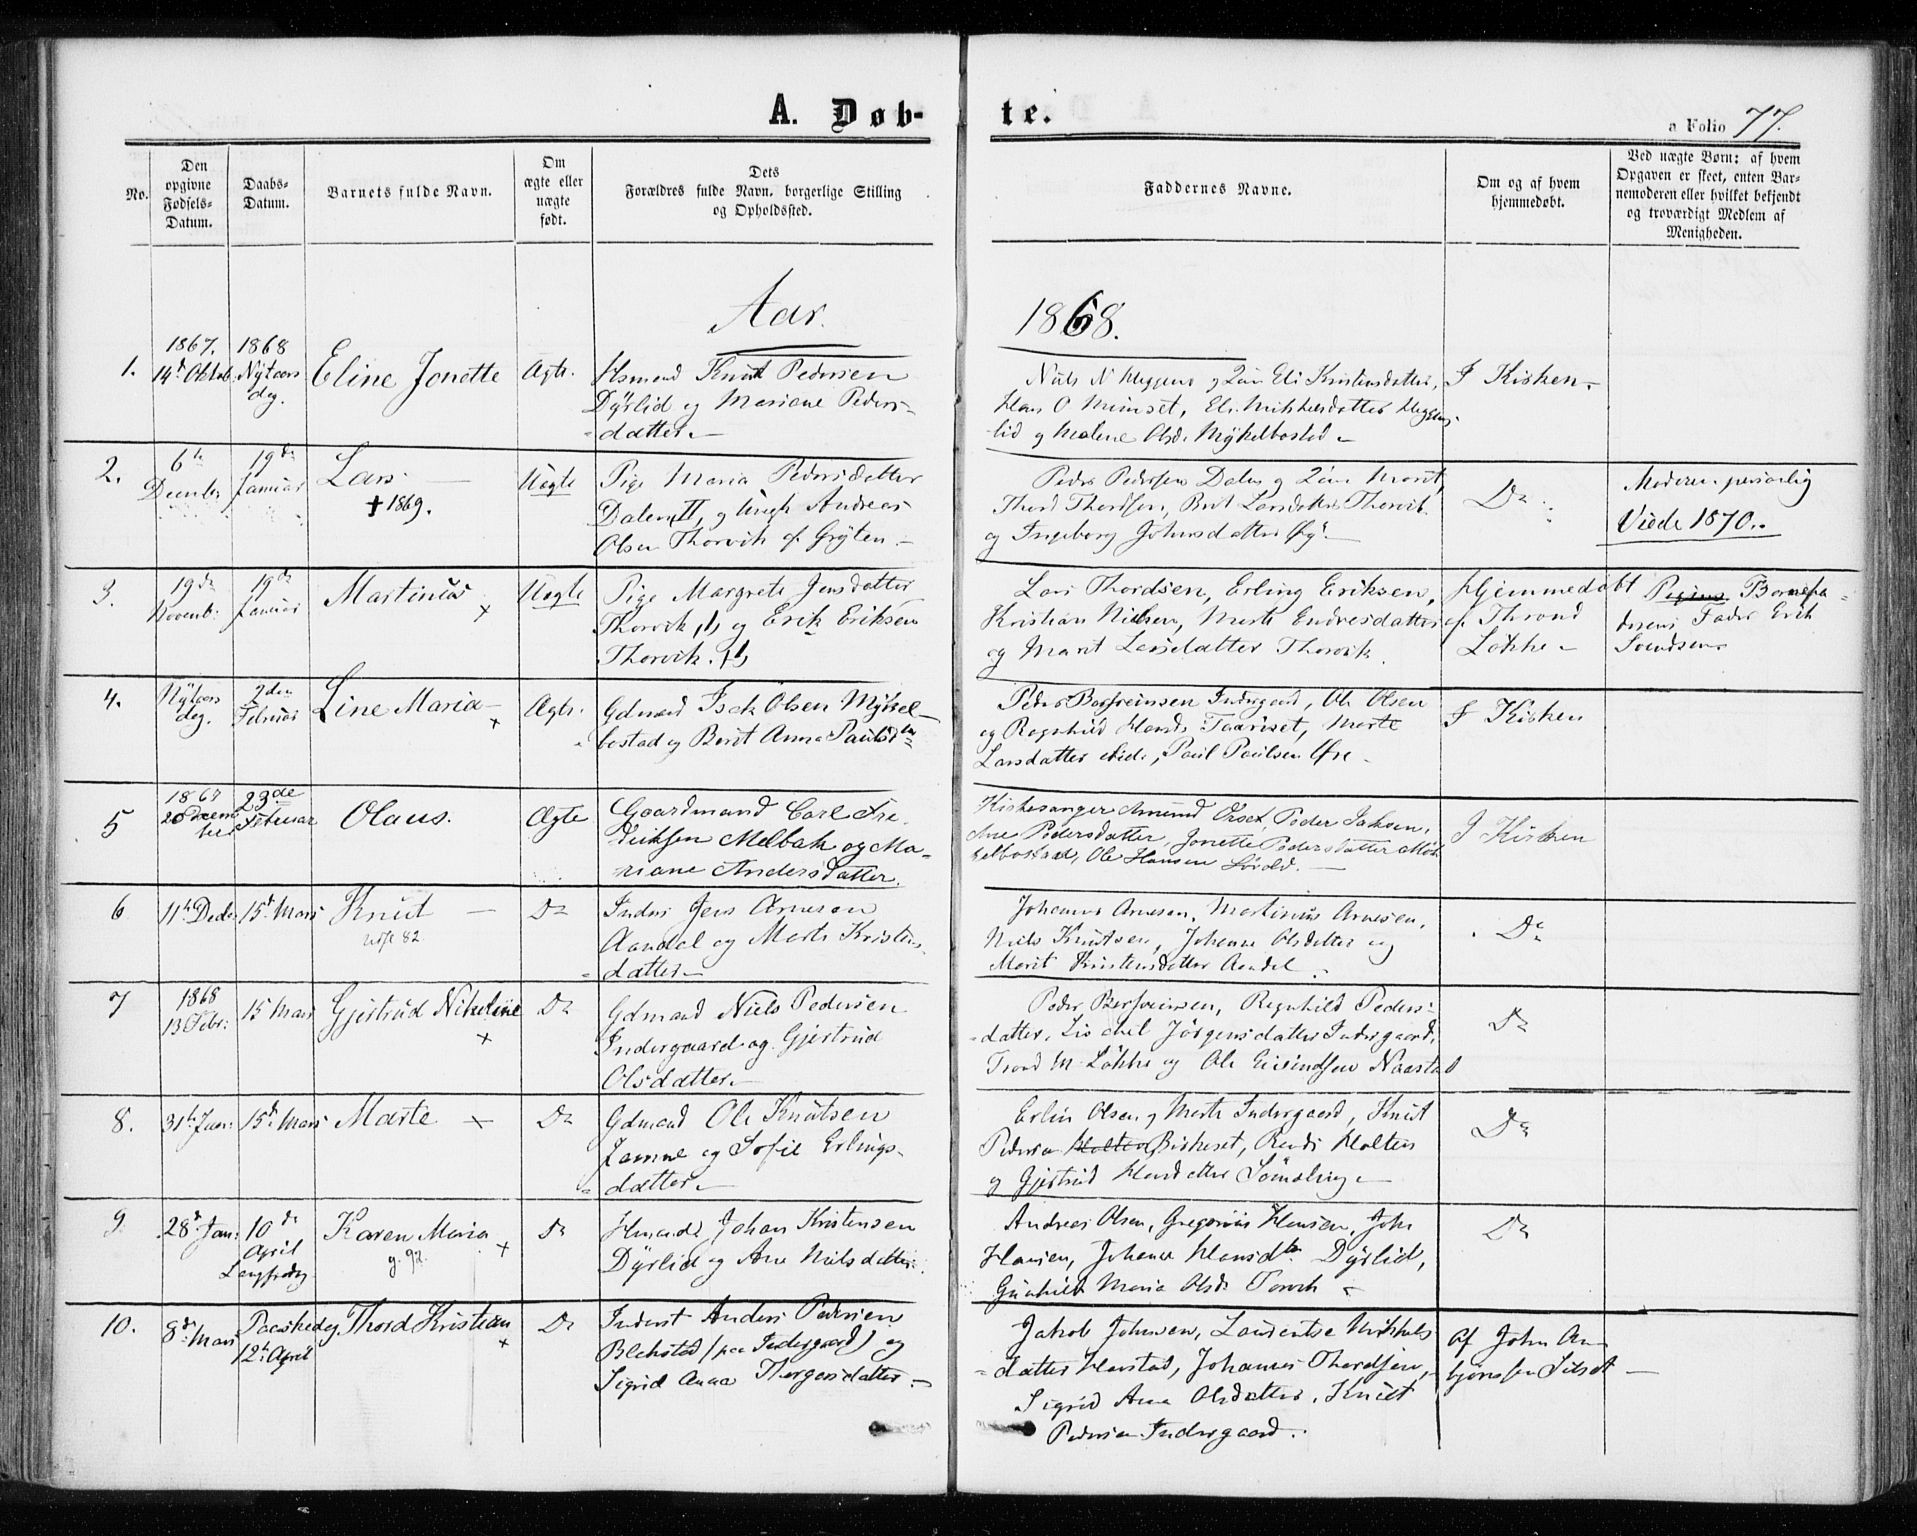 A. Døb-
te.
a Folio 77.
No.
Den
opgivne
Fødsels-
Datum.
Daabs-
Datum.
Barnets fulde Navn.
Om
ægte eller
uægte
født.
Dets
Forældres fulde Navn, borgerlige Stilling
og Opholdssted.
Faddernes Navne.
Om og af hvem
hjemmedøbt.
Ved uægte Børn: af hvem
Opgaven er skeet, enten Bar-
nemoderen eller hvilket bekjendt
og troværdigt Medlem af
Menigheden.
Aar.
1868.
1.
1867.
14d Oktob.
1868
Nytaars
dag.
Eline Jonette
Ægte.
Hsmand Knut Pedersen
Dyrlid og Mariane Peders-
datter.
Niels N Heggem og Eli Kristensdatter,
Hans O Mimset, Eli Mikkelsdatter Heggem-
lid og Malene Olsd. Myklebostad
I Kirken.
2.
6te
December
19de
Januar
Lars
† 1869.
Uægte
Pige Maria Pedersdatter
Dalen II, og Ungk Andreas
Olsen Thorvik af Gryten
Peder Pedersen Dalen og Marit,
Thord Thordsen, Brit Larsdatter Thorvik
og Ingeborg Johnsdatter
Do
Moderen personlig
Viede 1870.
3.
19de
Novemb.
19de
Januar
Martinus
×
Uægte
Pige Margrete Jensdatter
Thorvik, og Erik Eriksen
Thorvik.
Lars Thordsen, Erling Eriksen,
Kristian Nielsen, Marte Endresdatter
og Marit Larsdatter Thorvik.
Hjemmedøbt
af Thrond
Løkke
Pigens Barnefa-
derens Fader Erik
Svendsen
4.
Nytaars
dag.
2den
Februar
Line Maria
×
Ægte.
Gdmand Isak Olsen Mykle-
bostad og Berit Anna Paulsdtr
Peder Indergaard, Ole Olsen
og Ragnhild Hansd. Taariset, Marte
Larsdatter, Paul Paulsen Øre
I Kirken
5
1867
20 Decem-
ber
23de
Februar
Olaus.
Ægte
Gaardmand Carl Fre-
driksen Melbak og Ma-
riane Andersdatter.
Kirkesanger Amund Orset, Peder Jaksen,
Ane Pedersdatter, Jonette Pedersdatter Mök-
kelbostad, Ole Hansen
I Kirken
6
11te Decbr
15d Mars
Knut
82
Do
Inders Jens Arnesen
Aandal og Marte Kristens-
datter
Johannes Arnesen, Martinus Arnesen,
Niels Knutsen, Johanne Olsdatter og
Marit Kristensdatter Aandal.
Do
7
1868
13 Febr:
15 Mars
Gjertrud Nikoline
×
Do
Gdmand Niels Pedersen
Indergaard og Gjertrud
Olsdatter
Peder, Ragnhild Peders-
datter, Jørgensdatter Indergaard,
Trond M Løkke og Ole Eivindsen Naastad
Do
8.
31te Jan:
15d Mars
Marte
×
Do
Gdmand Ole Knutsen
og Sofie Erlings-
datter
Erlin Olsen og Marte Indergaard, Knut
Pedersen Holten Birkeset, Randi Holten
og Gjertrud Hansdatter
Do
9.
28d Jan:
10de
April
Langfredag
Karen Maria
g. 92.
×
Do
Hmand Johan Kristensen
Dyrlid og Ane Nielsdatter.
Andreas Olsen, Gregorius Hansen, John
Hansen, Johanne Hansdtr Dyrlid,
Gunhild Maria Olsd. Torvik
Do
10.
8de Mars
Paaskedag
12te April
Thord Kristian
×
Do
Inderst Anders Pedersen
Blekstad (paa Indergaard) og
Sigrid Anna Thorgersdatter
Jakob Johnsen, Laurentse Mikkels-
datter Harstad, Johannes Thordsen,
Sigrid Ana Olsdatter, Knut
Pedersen Indergaard.
Af John An-
bjørnsen Sitset